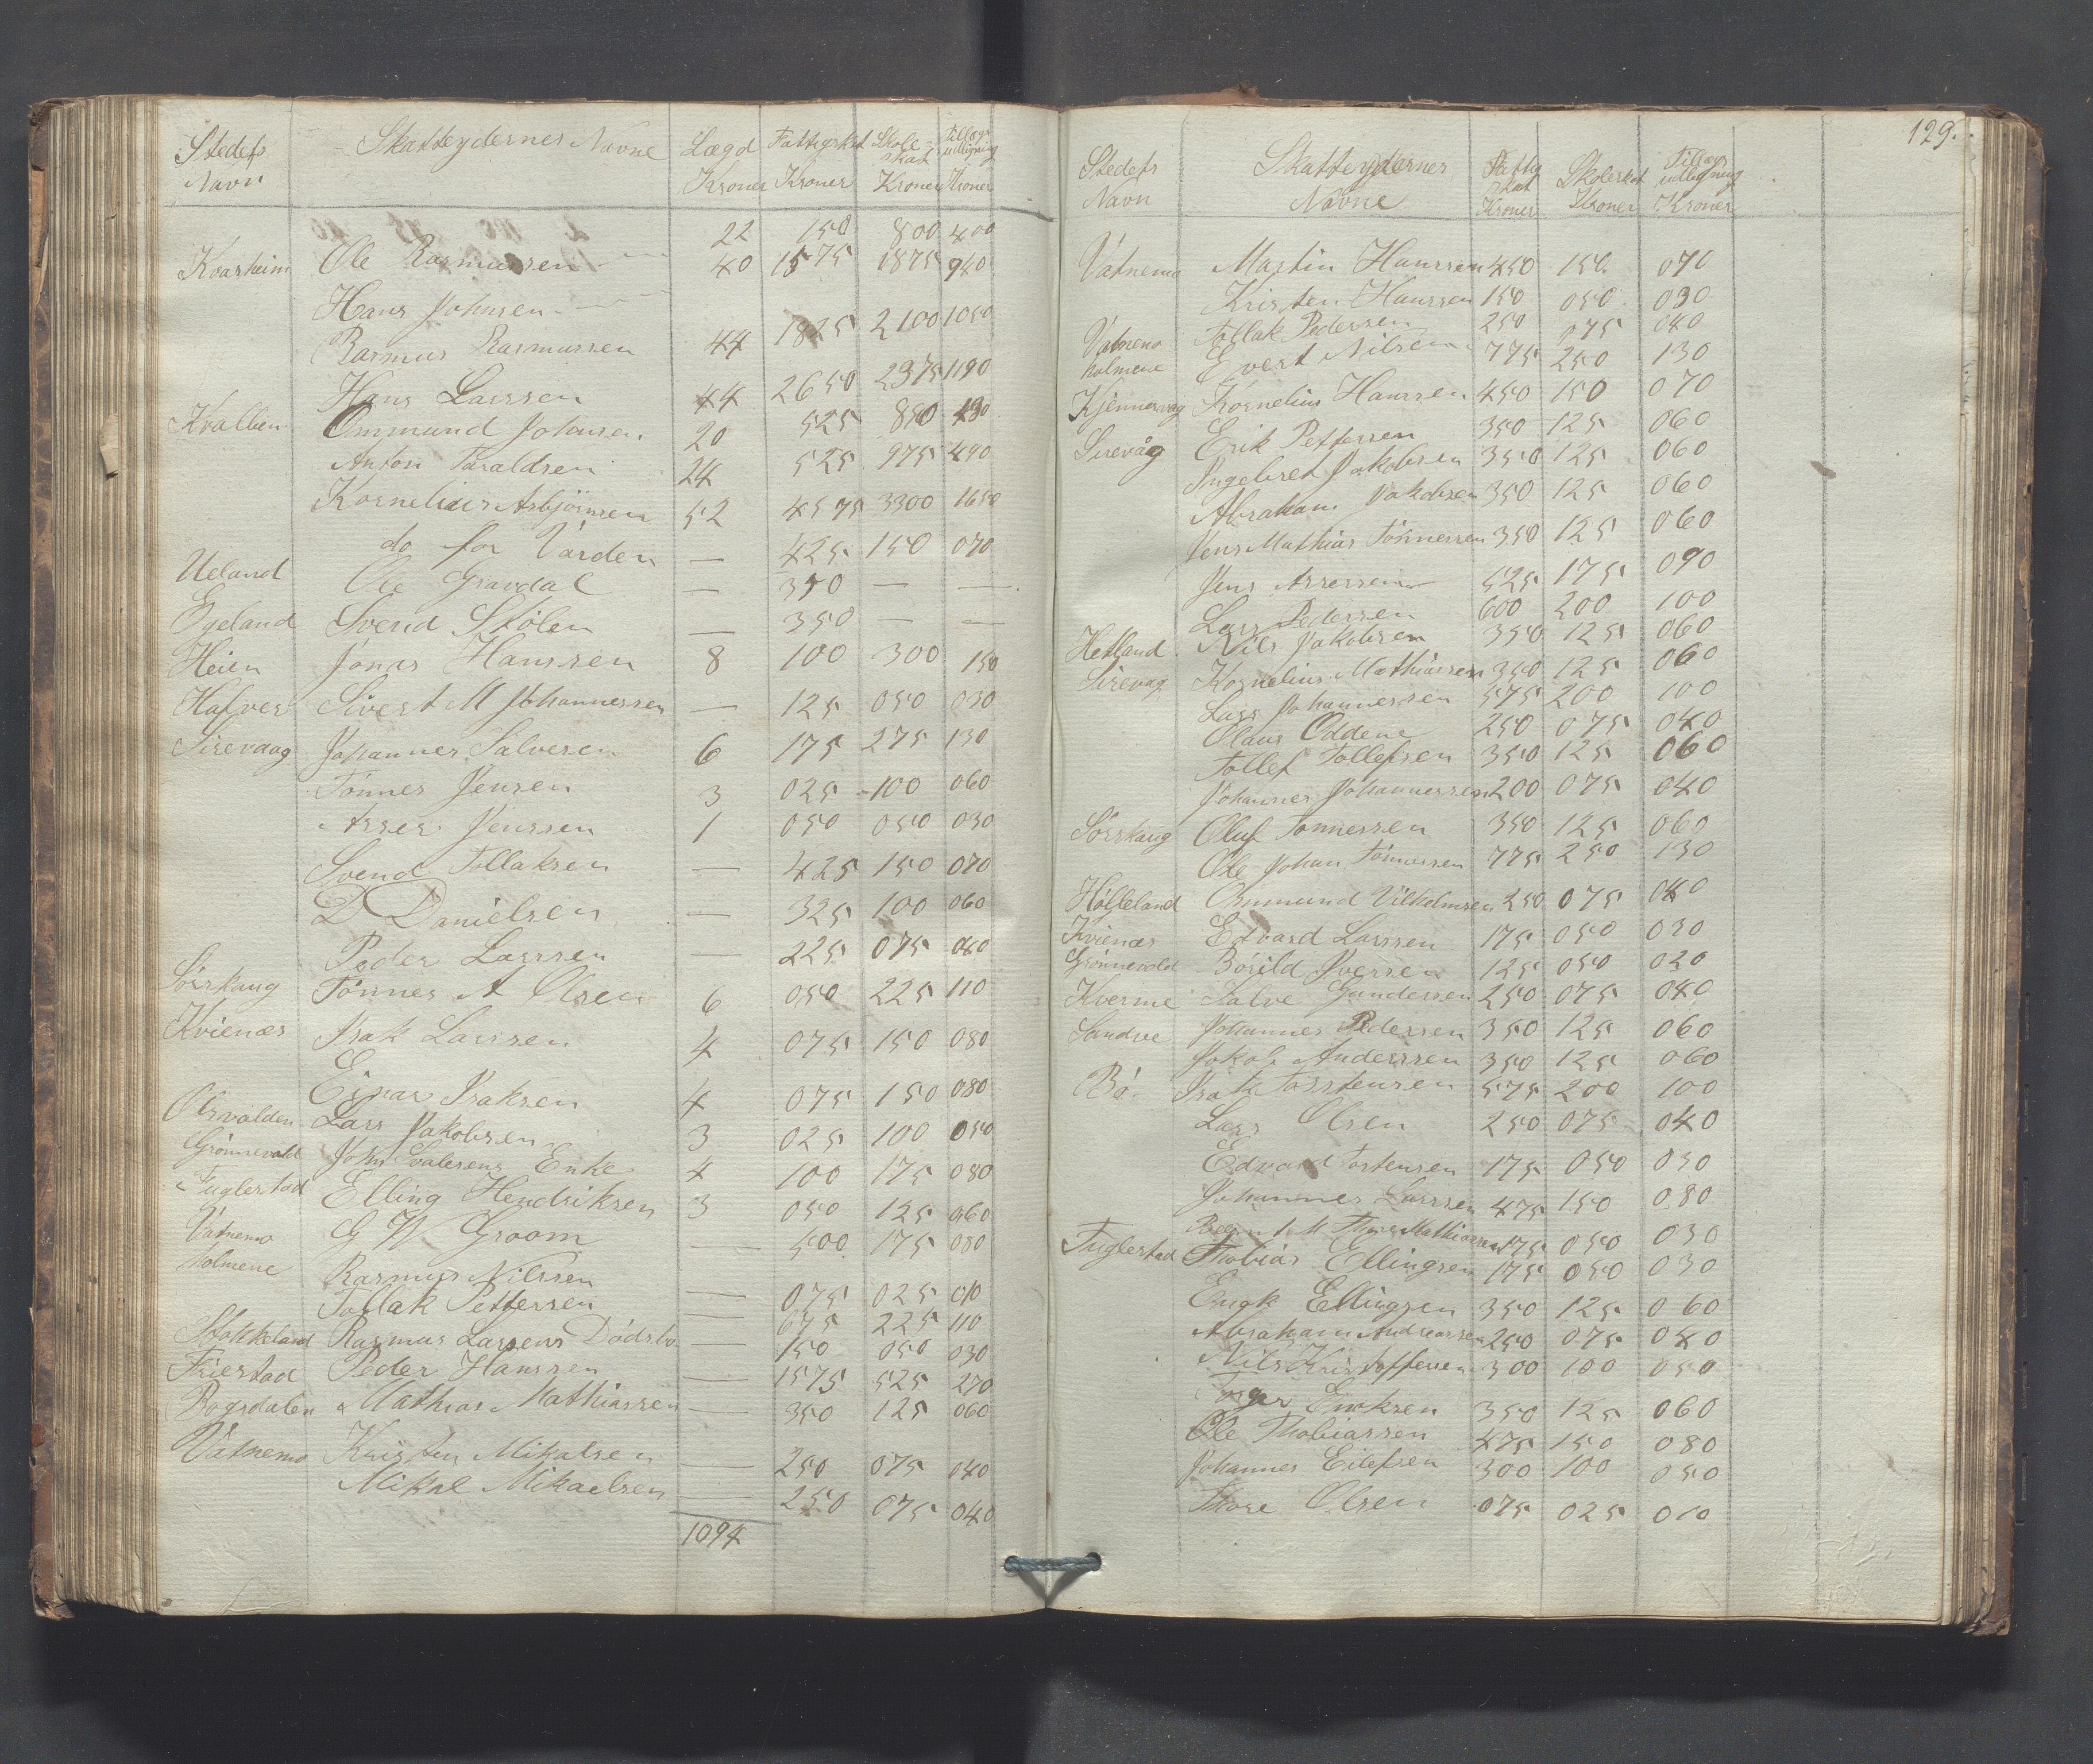 Stedets Navn | Skatteydernes Navne | Lægd Kroner | Fattigskat Kroner | Skole-skat Kroner | Tillægs udligning Kroner
Kvasheim Ole Rasmussen 22 150 800 400
Hans Johnsen 40 1575 1875 940
Rasmus Rasmussen 44 1825 2100 1050
Hans Larsen 44 2650 2375 1190
Kvalben Ommund Johnsen 20 525 850 430
Anton Taraldsen 24 525 975 490
Kornelius Asbjörnsen 52 4575 3300 1650
do for Varden — 425 150 070
Ueland Ole Gravdal — 350 — —
Egeland Svend Stölen — 350 — —
Heien Jonas Hanssen 8 100 300 150
Hafver Sivert M Johannessen — 125 050 030
Sirevaag Johannes Salvesen 6 175 275 130
Tönnes Jensen 3 025 100 060
Asser Jenssen 1 050 050 030
Svend Tollaksen — 425 150 070
D Danielsen — 325 100 060
Peder Larssen — 225 075 040
Sörskaug Tönnes A Olsen 6 050 225 110
Kvienæs Isak Larssen 4 075 150 080
Einar Isaksen 4 075 150 080
Lars Jakobsen 3 025 100 050
Grönnevold John Svalesens Enke 4 100 175 080
Fuglestad Elling Hendriksen 3 050 125 060
Vatnemo G W Groom — 500 175 080
holmene Rasmus Nilssen — 075 025 010
Tollak Pettersen — 675 225 110
Stokkeland Rasmus Larsens Dödsbo — 150 050 030
Friestad Peder Hanssen — 1575 525 270
Rogsdalen Mathias Mathiassen — 350 125 060
Vatnemo Kristen Mikalsen — 250 075 040
Mikal Mikaelsen — 250 075 040
1094
129.
Stedets Navn | Skatteydernes Navne | Fattigskat Kroner | Skoleskat Kroner | Tillægs udligning Kroner
Vatnemo Martin Hanssen 450 150 070
Kristen Hanssen 150 050 030
Vatnemo Tollak Pedersen 250 075 040
holmene Evert Nilsen 775 250 130
Kjennevag Kornelius Hanssen 450 150 070
Sirevåg Erik Pettersen 350 125 060
Ingebret Jakobsen 350 125 060
Abraham Jakobsen 350 125 060
Jens Mathias Tönnessen 350 125 060
Jens Assersen 525 175 090
Lars Pedersen 600 200 100
Hetland Nils Jakobsen 350 125 060
Sirevag Kornelius Mathiassen 350 125 060
Lars Johannessen 575 200 100
Olaus Oddene 250 075 040
Tollef Tollefsen 350 125 060
Johannes Johannessen 200 075 040
Sörskaug Oluf Tonnessen 350 125 060
Ole Johan Tönnessen 775 250 130
Hölleland Ommund Vilhelmsen 250 075 040
Kvienæs Edvard Larssen 175 050 030
Grönnevold Börild Iversen 125 050 020
Kverme Salve Gundersen 250 075 040
Sandve Johannes Pedersen 350 125 060
Jakob Anderssen 350 125 060
Bö Isak Torstensen 575 200 100
Lars Olsen 250 075 040
Edvard Tostensen 175 050 030
Johannes Larssen 475 150 080
Mathiassen 175 050 030
Fuglestad Thobias Ellingsen 175 050 030
Ellingsen 350 125 060
Abraham Andreassen 250 075 040
Nils Kristoffersen 300 100 050
350 125 060
Ole Thobiassen 475 150 080
Johannes Eilefsen 300 100 050
Thore Olsen 075 025 010